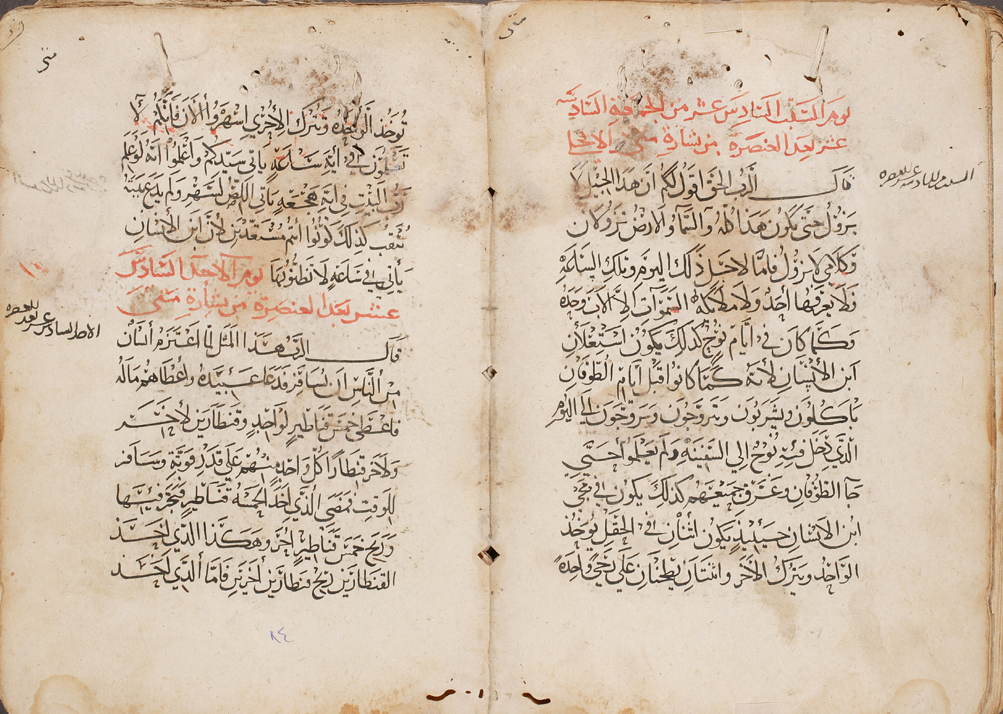 متى
يوم السبت السادس عشر من الجمعة السادسة
عشر بعد العنصرة من بشارة متى الانجيل
السبت السادس عشر بعد العنصره
قال الرب الحق اقول لكم ان هذا الجيل لا
يزول حتى يكون هذا كله والسماء والارض تزولان
وكلامي لا يزول فاما لاجل ذلك اليوم وتلك الساعة
فلا يعرفها احد ولا ملائكة السموات الا الاب وحده
وكما كان في ايام نوح كذلك يكون استعلان
ابن الانسان لانه كما كانوا قبل ايام الطوفان
ياكلون ويشربون ويتزوجون ويزوجون الى اليوم
الذي دخل فيه نوح الي السفينة ولم يعلموا حتى
جا الطوفان وغرق جميعهم كذلك يكون في مجي
ابن الانسان حينيذ يكون اثنان في الحقل يوخذ
الواحد ويترك الاخر واثنتان يطحنان على رحي واحدة
متى
توخذ الواحدة وتترك الاخرى اسهروا الان فانكم لا
تعلمون في اية ساعة ياتي سيدكم واعلموا انه لو علم
رب البيت في اية هجعة ياتي اللص لسهر ولم يدع بيته
ينقب كذلك كونوا انتم مستعدين لان ابن الانسان
ياتي في ساعة لا تظنونها يوم الاحد السادس
عشر بعد العنصرة من بشارة متى
الاحد السادس عشر بعد العنصره
قال الرب هذا المثل انسان
من الناس ان يسافر فدعا عبيده واعطاهم ماله
فاعطى خمس قناطير لواحد وقنطارين لاخر
ولاخر قنطارا كل واحد منهم على قدر قوته وسافر
للوقت فمضى الذي اخذ الخمسة قناطير فتجر فيها
وربح خمس قناطير اخر وهكذا الذي اخذ
القنطارين ربح قنطارين اخرين فاما الذي اخذ
٨٤